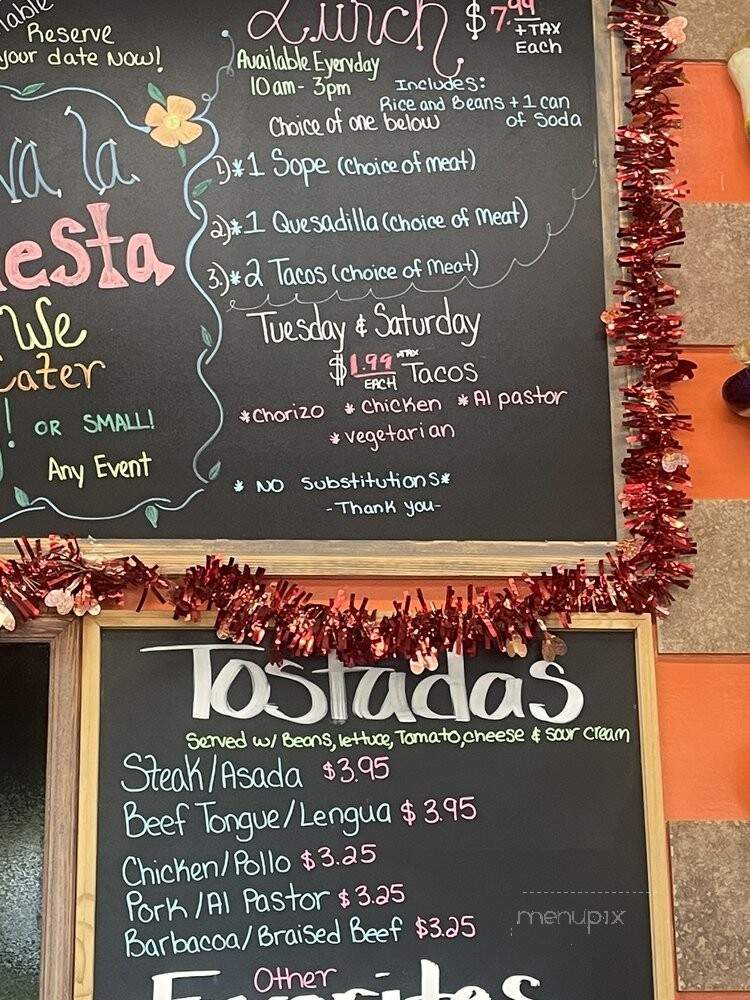 Reserve
your date now!
la
We
Cater
OR SMALL!
Any Event
Lunch $7.99
+TAX
Each
Available Eyervday
10am - 3pm
Includes:
Rice and Beans + 1 can
of Soda
Choice of one below
1.)*1 Sope (Choice of meat)
2.)*1 Quesadilla (choice of Meat)
3.)*2 Tacos (choice of Meat)
Tuesday & Saturday
$1.99 +TAX
EACH Tacos
*Chorizo *Chicken *Al pastor
*vegetarian
* NO Substitutions*
-Thank you-
Tostadas
Served w/ Beans, lettuce, Tomato, cheese & sour cream
Steak/Asada $3.95
Beef Tongue/Lengua $3.95
Chicken/Pollo $3.25
Pork/Al Pastor $3.25
Barbacoa/Braised Beef $3.25
Other
Favorites
menupix